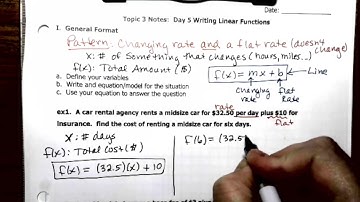 Date:
Topic 3 Notes: Day 5 Writing Linear Functions
I. General Format
Pattern: Changing rate and a flat rate (doesn't change)
x: # of something that changes (hours, miles...)
f(x): Total Amount ($)
f(x) = mx + b
Line
changing rate
flat rate
a. Define your variables
b. Write and equation/model for the situation
c. Use your equation to answer the question
rate
ex1. A car rental agency rents a midsize car for $32.50 per day plus $10 for
insurance. find the cost of renting a midsize car for six days.
flat
x: # days
f(x): Total cost ($)
f(x) = (32.5)(x) + 10
f(6) = (32.5